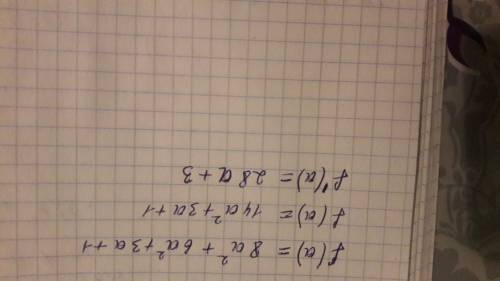 f(a) = 8a² + 6a² + 3a + 1
f(a) = 14a² + 3a + 1
f'(a) = 28a + 3